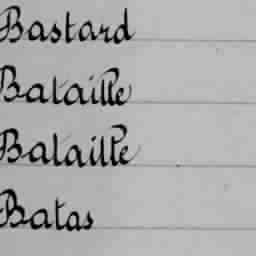 Bastard
Bataille
Bataille
Batas